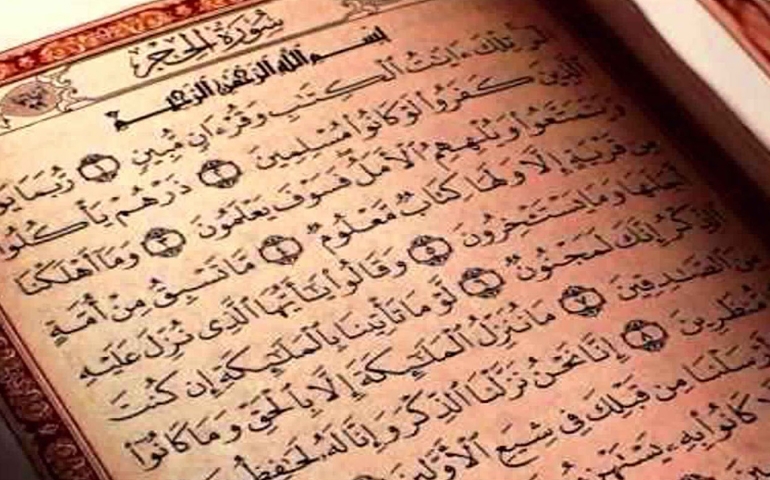 سُورَةُ الحِجْرِ
بِسْمِ ٱللَّهِ ٱلرَّحْمَٰنِ ٱلرَّحِيمِ
الٓر تِلْكَ ءَايَٰتُ ٱلْكِتَٰبِ وَقُرْءَانٍ مُّبِينٍ ١ رُّبَمَا
ٱلَّذِينَ كَفَرُوا۟ لَوْ كَانُوا۟ مُسْلِمِينَ ٢ ذَرْهُمْ يَأْكُلُوا۟
وَيَتَمَتَّعُوا۟ وَيُلْهِهِمُ ٱلْأَمَلُ فَسَوْفَ يَعْلَمُونَ ٣ وَمَآ أَهْلَكْنَا
مِن قَرْيَةٍ إِلَّا وَلَهَا كِتَابٌ مَّعْلُومٌ ٤ مَّا تَسْبِقُ مِنْ أُمَّةٍ
أَجَلَهَا وَمَا يَسْتَـْٔخِرُونَ ٥ وَقَالُوا۟ يَٰٓأَيُّهَا ٱلَّذِى نُزِّلَ عَلَيْهِ
ٱلذِّكْرُ إِنَّكَ لَمَجْنُونٌ ٦ لَّوْ مَا تَأْتِينَا بِٱلْمَلَٰٓئِكَةِ إِن كُنتَ
مِنَ ٱلصَّٰدِقِينَ ٧ مَا نُنَزِّلُ ٱلْمَلَٰٓئِكَةَ إِلَّا بِٱلْحَقِّ وَمَا كَانُوٓا۟
مُّنظَرِينَ ٨ إِنَّا نَحْنُ نَزَّلْنَا ٱلذِّكْرَ وَإِنَّا لَهُۥ لَحَٰفِظُونَ
أَرْسَلْنَا مِن قَبْلِكَ فِى شِيَعِ ٱلْأَوَّلِينَ
كَانُوا۟ بِهِۦ